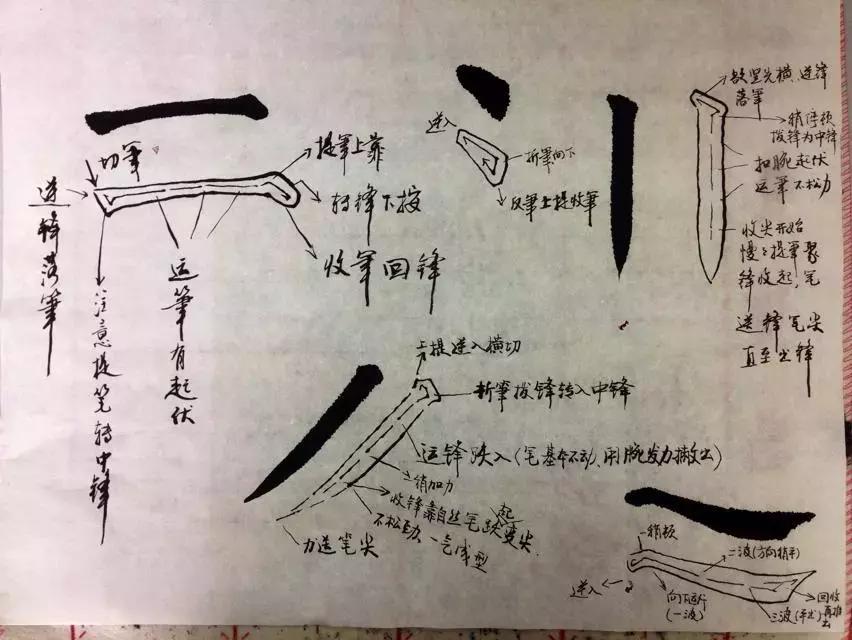 切筆
逆鋒落筆
注意提笔转中锋
运筆有起伏
提筆上靠
转锋下按
收笔回锋
逆入
折筆向下
反筆上提收筆
欲竖先横、逆锋
落筆
稍停顿
拨锋为中锋
扣腕起伏
运筆不松力
收尖开始
慢慢提筆聚
锋收起,笔
送锋笔尖
直至出锋
上提逆入横切
折筆拨锋转入中锋
运锋跌入(笔基本不动、用腕发力撇出)
稍加力
收锋靠自然笔跌起变尖
不松劲、一气成型
力送笔尖
稍顿
二波(方向稍平)
逆入
向下运行
(一波)
三波(平出)
回收
再推
出